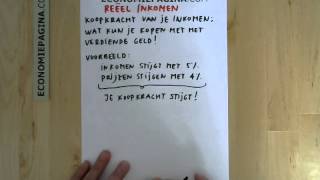 ECONOMIEPAGINA.COM
REEEL INKOMEN
KOOPKRACHT VAN JE INKOMEN:
WAT KUN JE KOPEN MET HET
VERDIENDE GELD!
VOORBEELD:
INKOMEN STIJGT MET 5%
PRIJZEN STIJGEN MET 4%
JE KOOPKRACHT STIJGT!
ECONOMIEPAGINA.COM